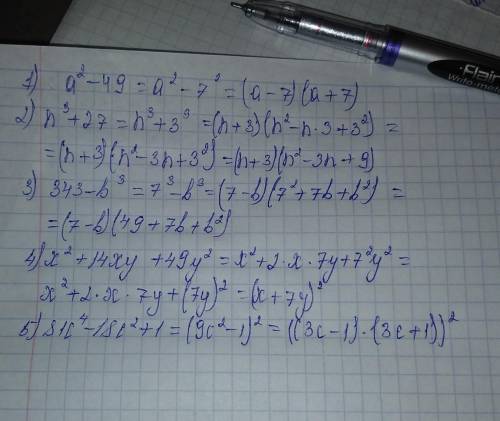 Flair
Write-met
1) a² – 49 = a² – 7² = (a – 7)(a + 7)
2) n³ + 27 = n³ + 3³ = (n + 3)(n² – n · 3 + 3²) =
= (n + 3)(n² – 3n + 3²) = (n + 3)(n² – 3n + 9)
3) 343 – b³ = 7³ – b³ = (7 – b)(7² + 7b + b²) =
= (7 – b)(49 + 7b + b²)
4) x² + 14xy + 49y² = x² + 2 · x · 7y + 7²y² =
x² + 2 · x · 7y + (7y)² = (x + 7y)²
5) 81c⁴ – 18c² + 1 = (9c² – 1)² = ((3c – 1) · (3c + 1))²